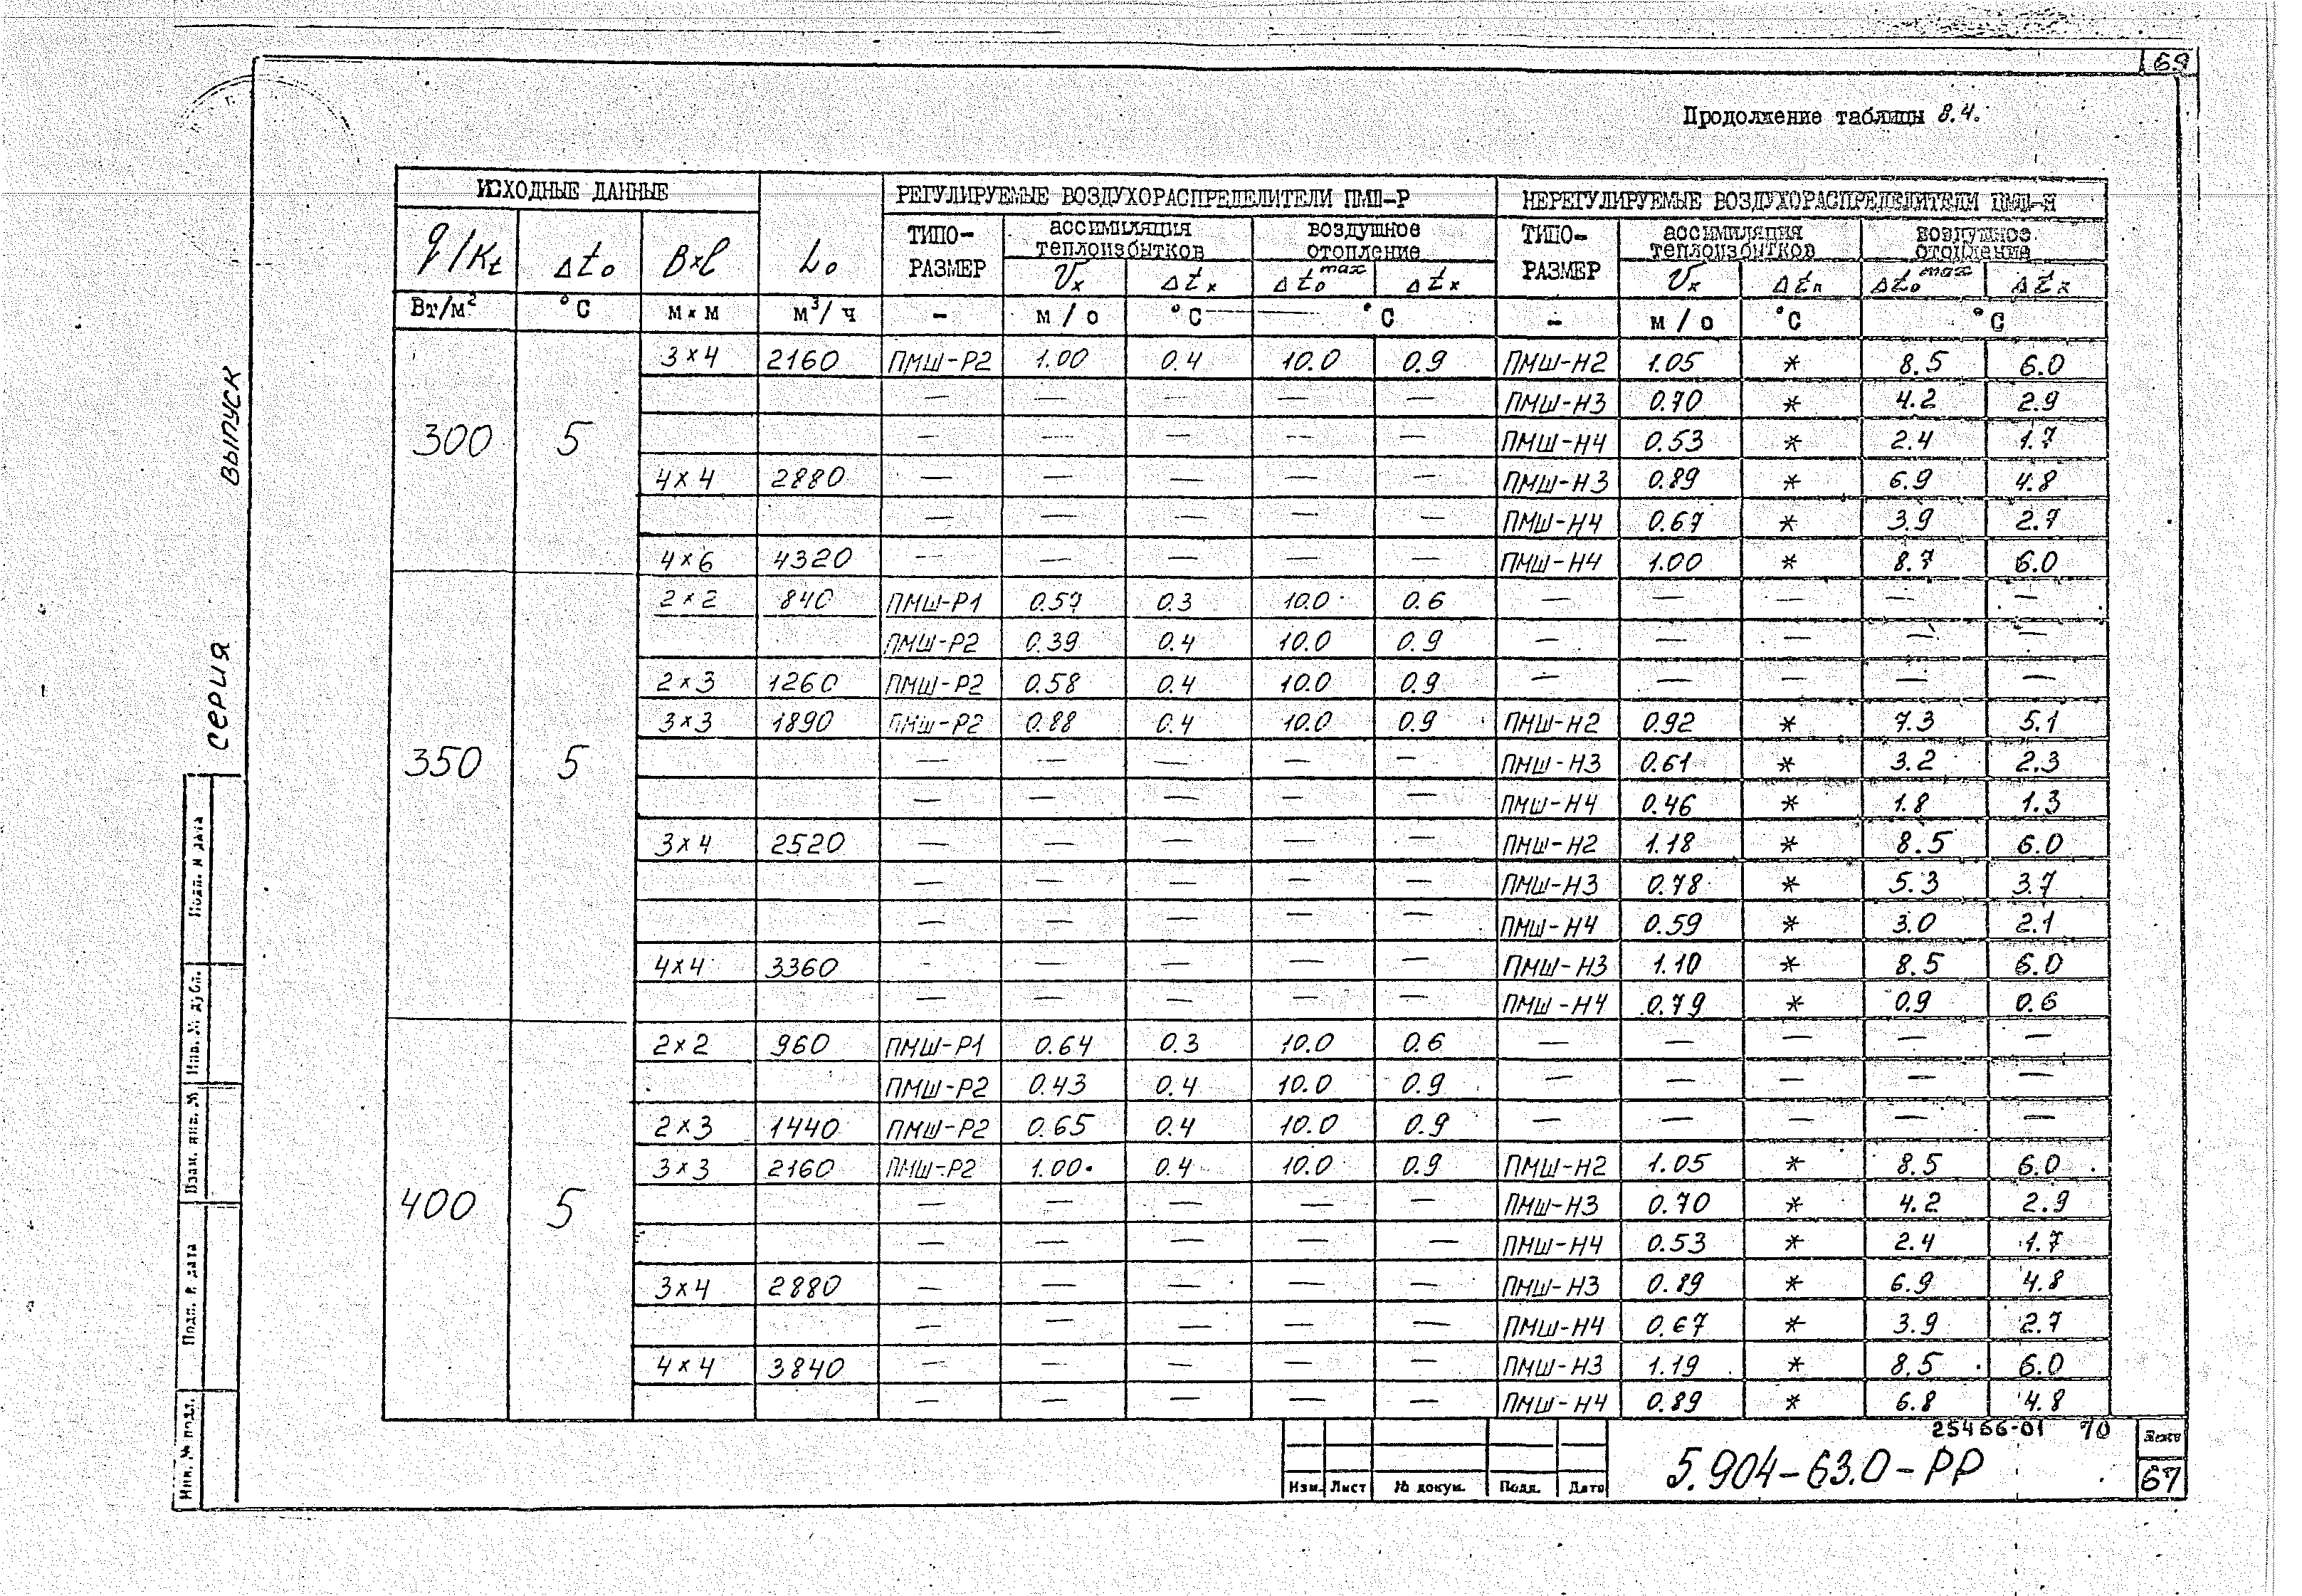 69
Продолжение таблицы 8.4.
ИСХОДНЫЕ ДАННЫЕ РЕГУЛИРУЕМЫЕ ВОЗДУХОРАСПРЕДЕЛИТЕЛИ ПМШ-Р НЕРЕГУЛИРУЕМЫЕ ВОЗДУХОРАСПРЕДЕЛИТЕЛИ ПМШ-Н
q/Kt Δt₀ В×l L₀ ТИПО-РАЗМЕР ассимиляция теплоизбытков воздушное отопление ТИПО-РАЗМЕР ассимиляция теплоизбытков воздушное отопление
Vx Δtx Δt₀max Δtx Vx Δtп Δt₀max Δtx
Вт/м² °С м×м м³/ч – м/с °С °С – м/с °С °С
300 5
3×4 2160 ПМШ-Р2 1.00 0.4 10.0 0.9 ПМШ-Н2 1.05 * 8.5 6.0
— — — — — ПМШ-Н3 0.70 * 4.2 2.9
— — — — — ПМШ-Н4 0.53 * 2.4 1.7
4×4 2880 — — — — — ПМШ-Н3 0.89 * 6.9 4.8
— — — — — ПМШ-Н4 0.67 * 3.9 2.7
4×6 4320 — — — — — ПМШ-Н4 1.00 * 8.7 6.0
350 5
2×2 840 ПМШ-Р1 0.57 0.3 10.0 0.6 — — — — —
ПМШ-Р2 0.39 0.4 10.0 0.9 — — — — —
2×3 1260 ПМШ-Р2 0.58 0.4 10.0 0.9 — — — — —
3×3 1890 ПМШ-Р2 0.88 0.4 10.0 0.9 ПМШ-Н2 0.92 * 7.3 5.1
— — — — — ПМШ-Н3 0.61 * 3.2 2.3
— — — — — ПМШ-Н4 0.46 * 1.8 1.3
3×4 2520 — — — — — ПМШ-Н2 1.18 * 8.5 6.0
— — — — — ПМШ-Н3 0.78 * 5.3 3.7
— — — — — ПМШ-Н4 0.59 * 3.0 2.1
4×4 3360 — — — — — ПМШ-Н3 1.10 * 8.5 6.0
— — — — — ПМШ-Н4 0.79 * 0.9 0.6
400 5
2×2 960 ПМШ-Р1 0.64 0.3 10.0 0.6 — — — — —
ПМШ-Р2 0.43 0.4 10.0 0.9 — — — — —
2×3 1440 ПМШ-Р2 0.65 0.4 10.0 0.9 — — — — —
3×3 2160 ПМШ-Р2 1.00 0.4 10.0 0.9 ПМШ-Н2 1.05 * 8.5 6.0
— — — — — ПМШ-Н3 0.70 * 4.2 2.9
— — — — — ПМШ-Н4 0.53 * 2.4 1.7
3×4 2880 — — — — — ПМШ-Н3 0.89 * 6.9 4.8
— — — — — ПМШ-Н4 0.67 * 3.9 2.7
4×4 3840 — — — — — ПМШ-Н3 1.19 * 8.5 6.0
— — — — — ПМШ-Н4 0.89 * 6.8 4.8
25466-01 70
Изм. Лист № докум. Подп. Дата
5.904-63.0-РР
Лист
67
серия выпуск
Подп. и дата
Инв. № дубл.
Взам. инв. №
Подп. и дата
Инв. № подл.